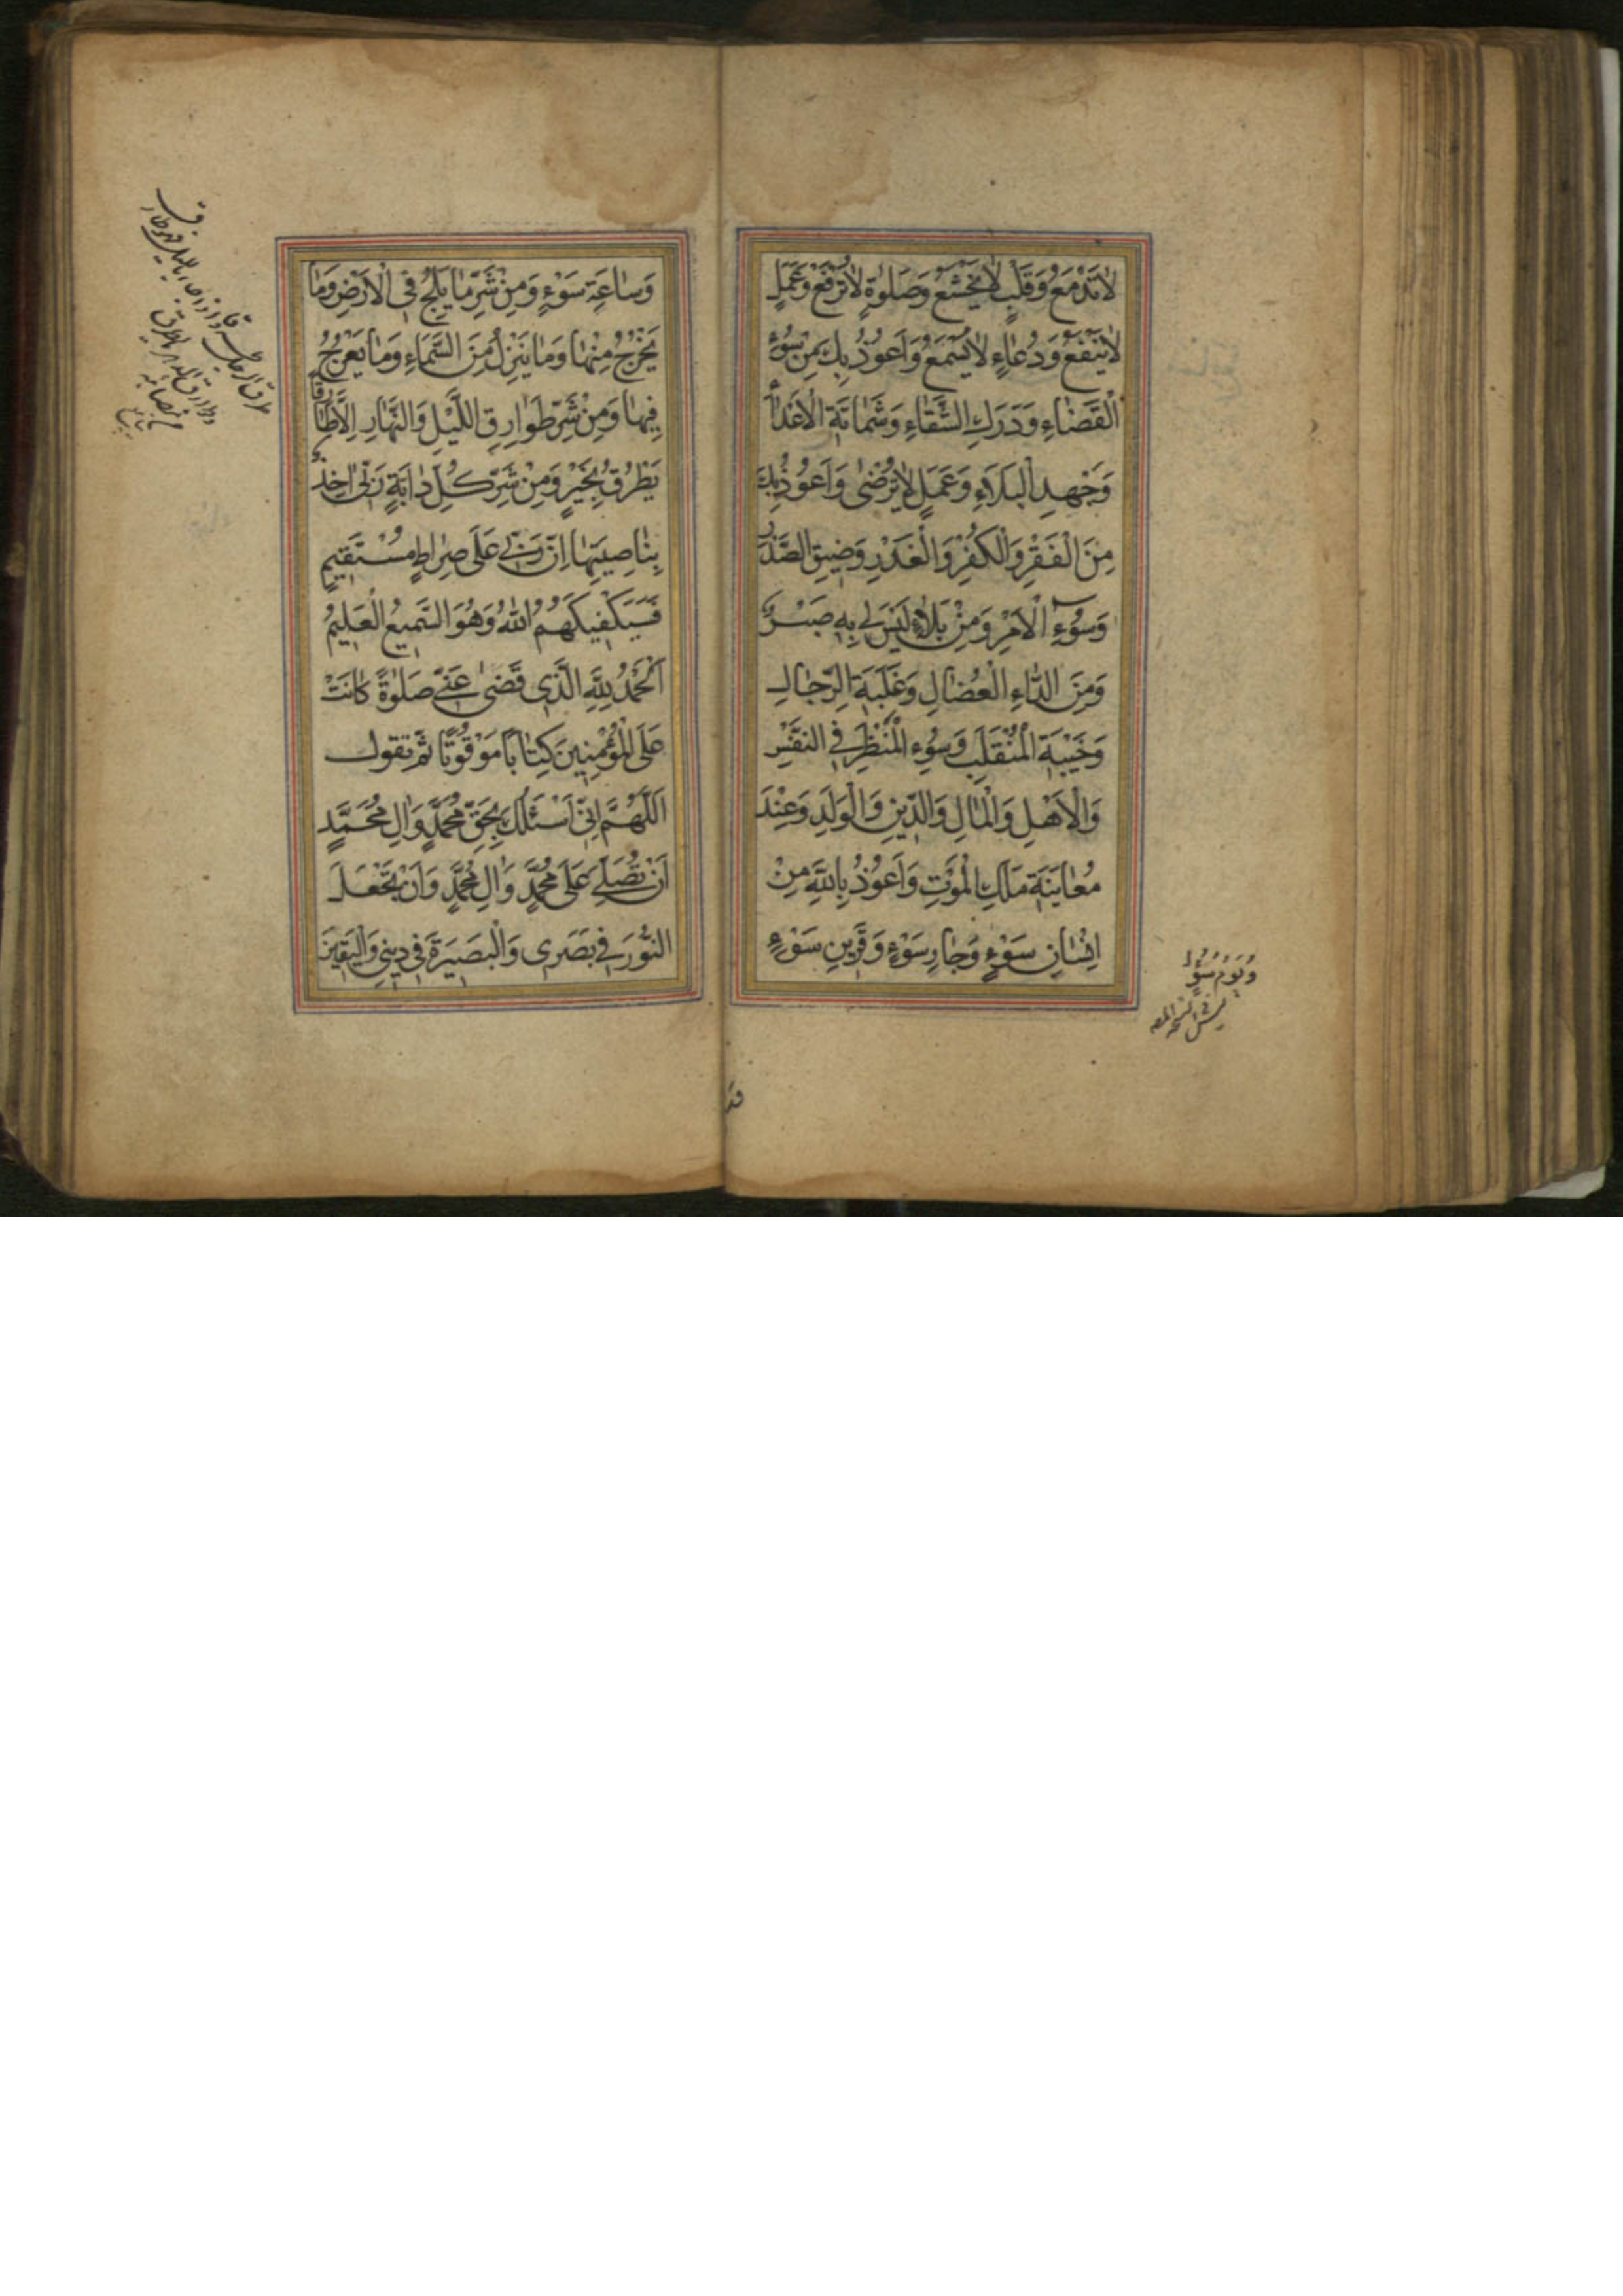 لَا تَدْمَعُ وَقَلْبٍ لَا يَخْشَعُ وَصَلٰوةٍ لَا تُرْفَعُ وَعَمَلٍ
لَا يَنْفَعُ وَدُعَاءٍ لَا يُسْمَعُ وَاَعُوذُ بِكَ مِنْ سُوءِ
الْقَضَاءِ وَدَرَكِ الشَّقَاءِ وَشَمَاتَةِ الْاَعْدَاءِ
وَجَهْدِ الْبَلَاءِ وَعَمَلٍ لَا يُرْضٰى وَاَعُوذُ بِكَ
مِنَ الْفَقْرِ وَالْكُفْرِ وَالْغَدْرِ وَضِيقِ الصَّدْرِ
وَسُوءِ الْاَمْرِ وَمِنْ بَلَاءٍ لَيْسَ لِي بِهِ صَبْرٌ
وَمِنَ الدَّاءِ الْعُضَالِ وَغَلَبَةِ الرِّجَالِ
وَخَيْبَةِ الْمُنْقَلَبِ وَسُوءِ الْمَنْظَرِ فِي النَّفْسِ
وَالْاَهْلِ وَالْمَالِ وَالدِّينِ وَالْوَلَدِ وَعِنْدَ
مُعَايَنَةِ مَلَكِ الْمَوْتِ وَاَعُوذُ بِاللّٰهِ مِنْ
اِنْسَانِ سَوْءٍ وَجَارِ سَوْءٍ وَقَرِينِ سَوْءٍ
وَيَوْمِ سَوْءٍ
وَسَاعَةِ سَوْءٍ وَمِنْ شَرِّ مَا يَلِجُ فِي الْاَرْضِ وَمَا
يَخْرُجُ مِنْهَا وَمَا يَنْزِلُ مِنَ السَّمَاءِ وَمَا يَعْرُجُ
فِيهَا وَمِنْ شَرِّ طَوَارِقِ اللَّيْلِ وَالنَّهَارِ اِلَّا طَارِقًا
يَطْرُقُ بِخَيْرٍ وَمِنْ شَرِّ كُلِّ دَابَّةٍ رَبِّي اٰخِذٌ
بِنَاصِيَتِهَا اِنَّ رَبِّي عَلَى صِرَاطٍ مُسْتَقِيمٍ
فَسَيَكْفِيكَهُمُ اللّٰهُ وَهُوَ السَّمِيعُ الْعَلِيمُ
اَلْحَمْدُ لِلّٰهِ الَّذِي قَضٰى عَنِّي صَلٰوةً كَانَتْ
عَلَى الْمُؤْمِنِينَ كِتَابًا مَوْقُوتًا ثُمَّ تقول
اَللّٰهُمَّ اِنِّي اَسْئَلُكَ بِحَقِّ مُحَمَّدٍ وَاٰلِ مُحَمَّدٍ
اَنْ تُصَلِّيَ عَلَى مُحَمَّدٍ وَاٰلِ مُحَمَّدٍ وَاَنْ تَجْعَلَ
النُّورَ فِي بَصَرِي وَالْبَصِيرَةَ فِي دِينِي وَالْيَقِينَ